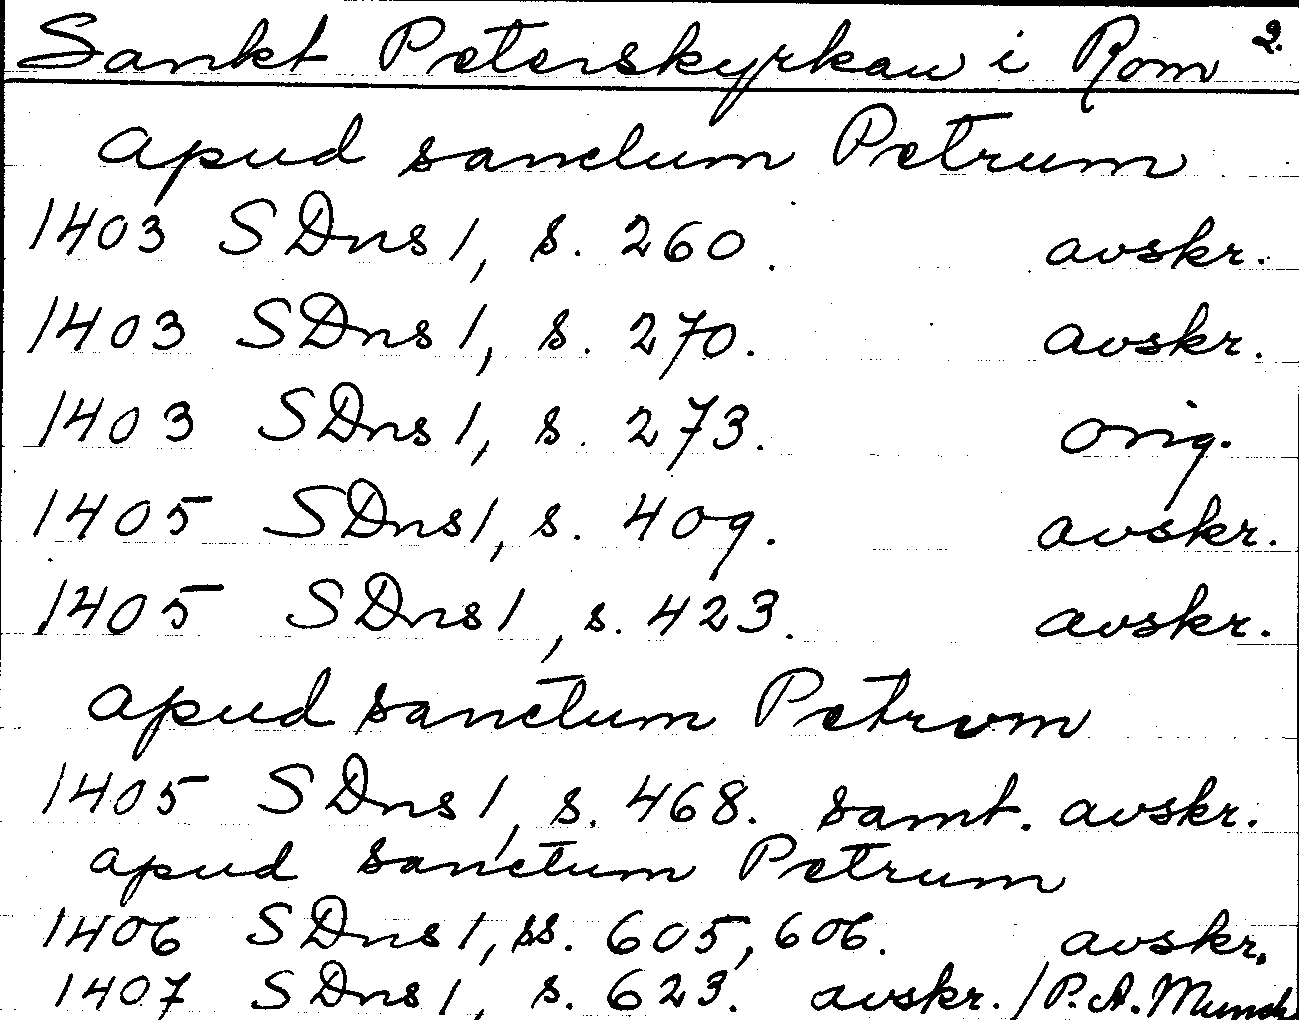 Sankt Peterskyrkan i Rom 2.
apud sanctum Petrum
1403 SDns 1, s. 260. avskr.
1403 SDns 1, s. 270. avskr.
1403 SDns 1, s. 273. orig.
1405 SDns 1, s. 409. avskr.
1405 SDns 1, s. 423. avskr.
apud sanctum Petrvm
1405 SDns 1, s. 468. samt. avskr.
apud sanctum Petrum
1406 SDns 1, ss. 605, 606. avskr.
1407 SDns 1, s. 623. avskr. /P. A. Munch